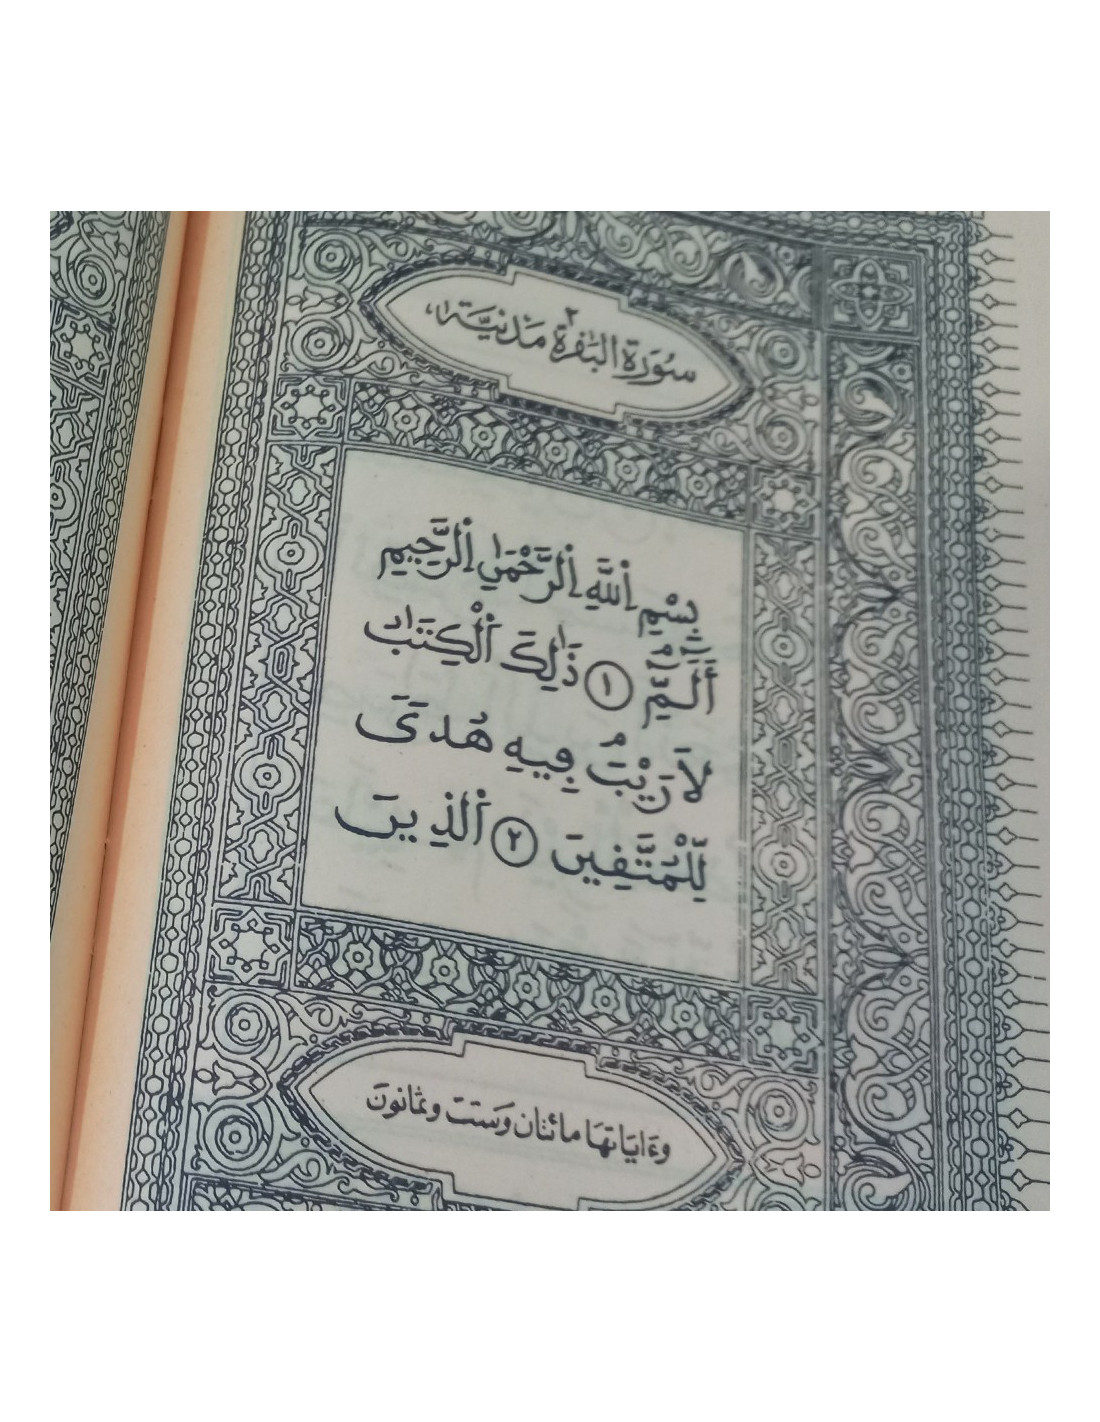 سُورَةُ البَقَرَةِ مَدَنِيَّة ٢
بِسْمِ اِ۬للَّهِ اِ۬لرَّحْمَٰنِ اِ۬لرَّحِيمِ
أَلَٓمِّٓۖ ١ ذَٰلِكَ اَ۬لْكِتَٰبُ
لَا رَيْبَۖ فِيهِ هُدىَ
لِّلْمُتَّقِينَ ٢ اَ۬لذِينَ
وءَاياتها مائتان وست وثمانون